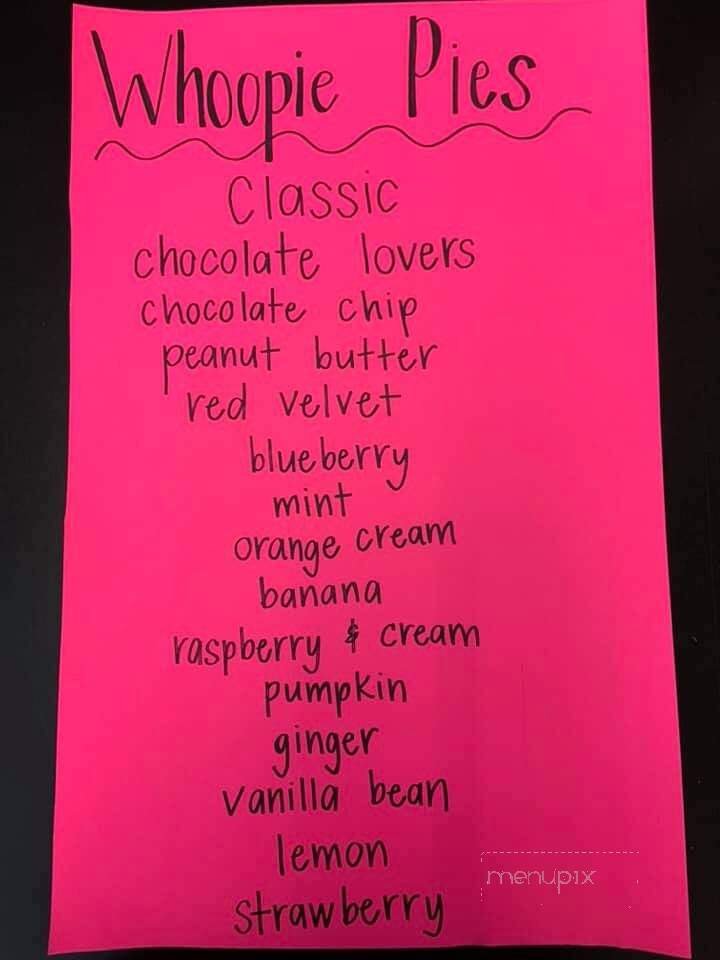 Whoopie Pies
Classic
chocolate lovers
chocolate chip
peanut butter
red velvet
blueberry
mint
orange cream
banana
raspberry & cream
pumpkin
ginger
vanilla bean
lemon
menupix
strawberry